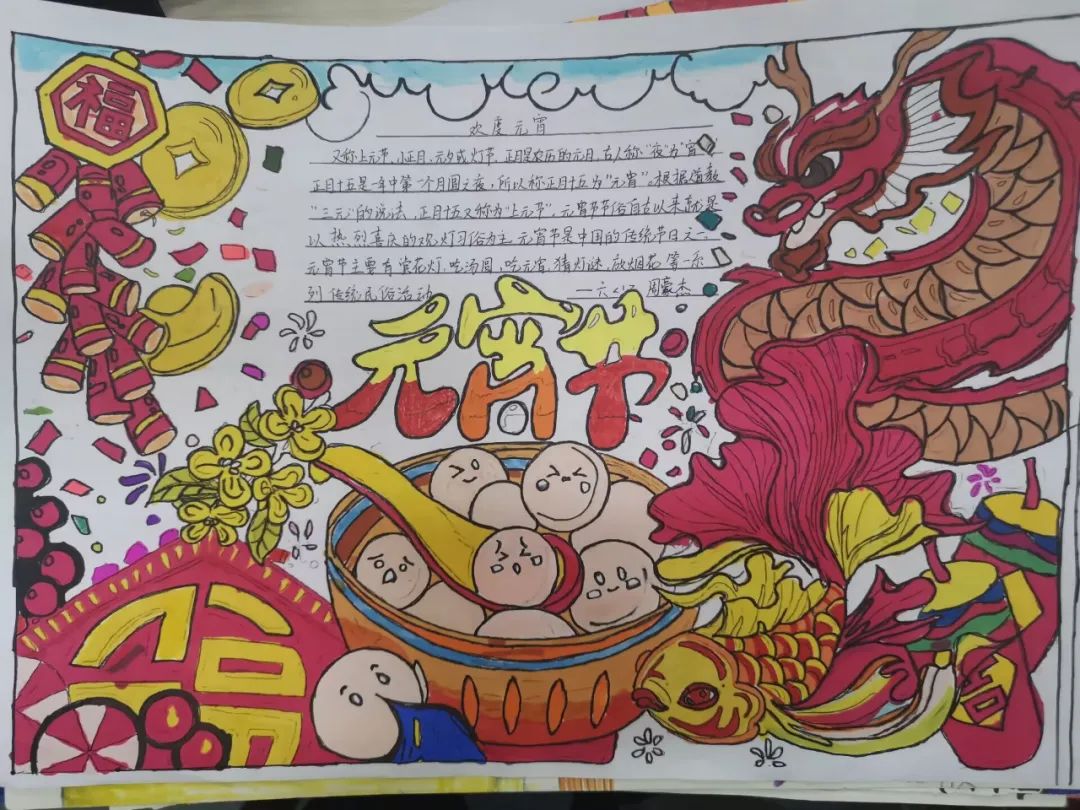 福
欢度元宵
又称上元节,小正月、元夕或灯节,正月是农历的元月,古人称"夜"为"宵"
正月十五是一年中第一个月圆之夜,所以称正月十五为"元宵"。根据道教
"三元"的说法,正月十五又称为"上元节"。元宵节节俗自古以来就是
以热烈喜庆的观灯习俗为主。元宵节是中国的传统节日之一,
元宵节主要有赏花灯,吃汤圆,吃元宵,猜灯谜,放烟花等一系
列传统民俗活动 周豪杰
元宵节
福